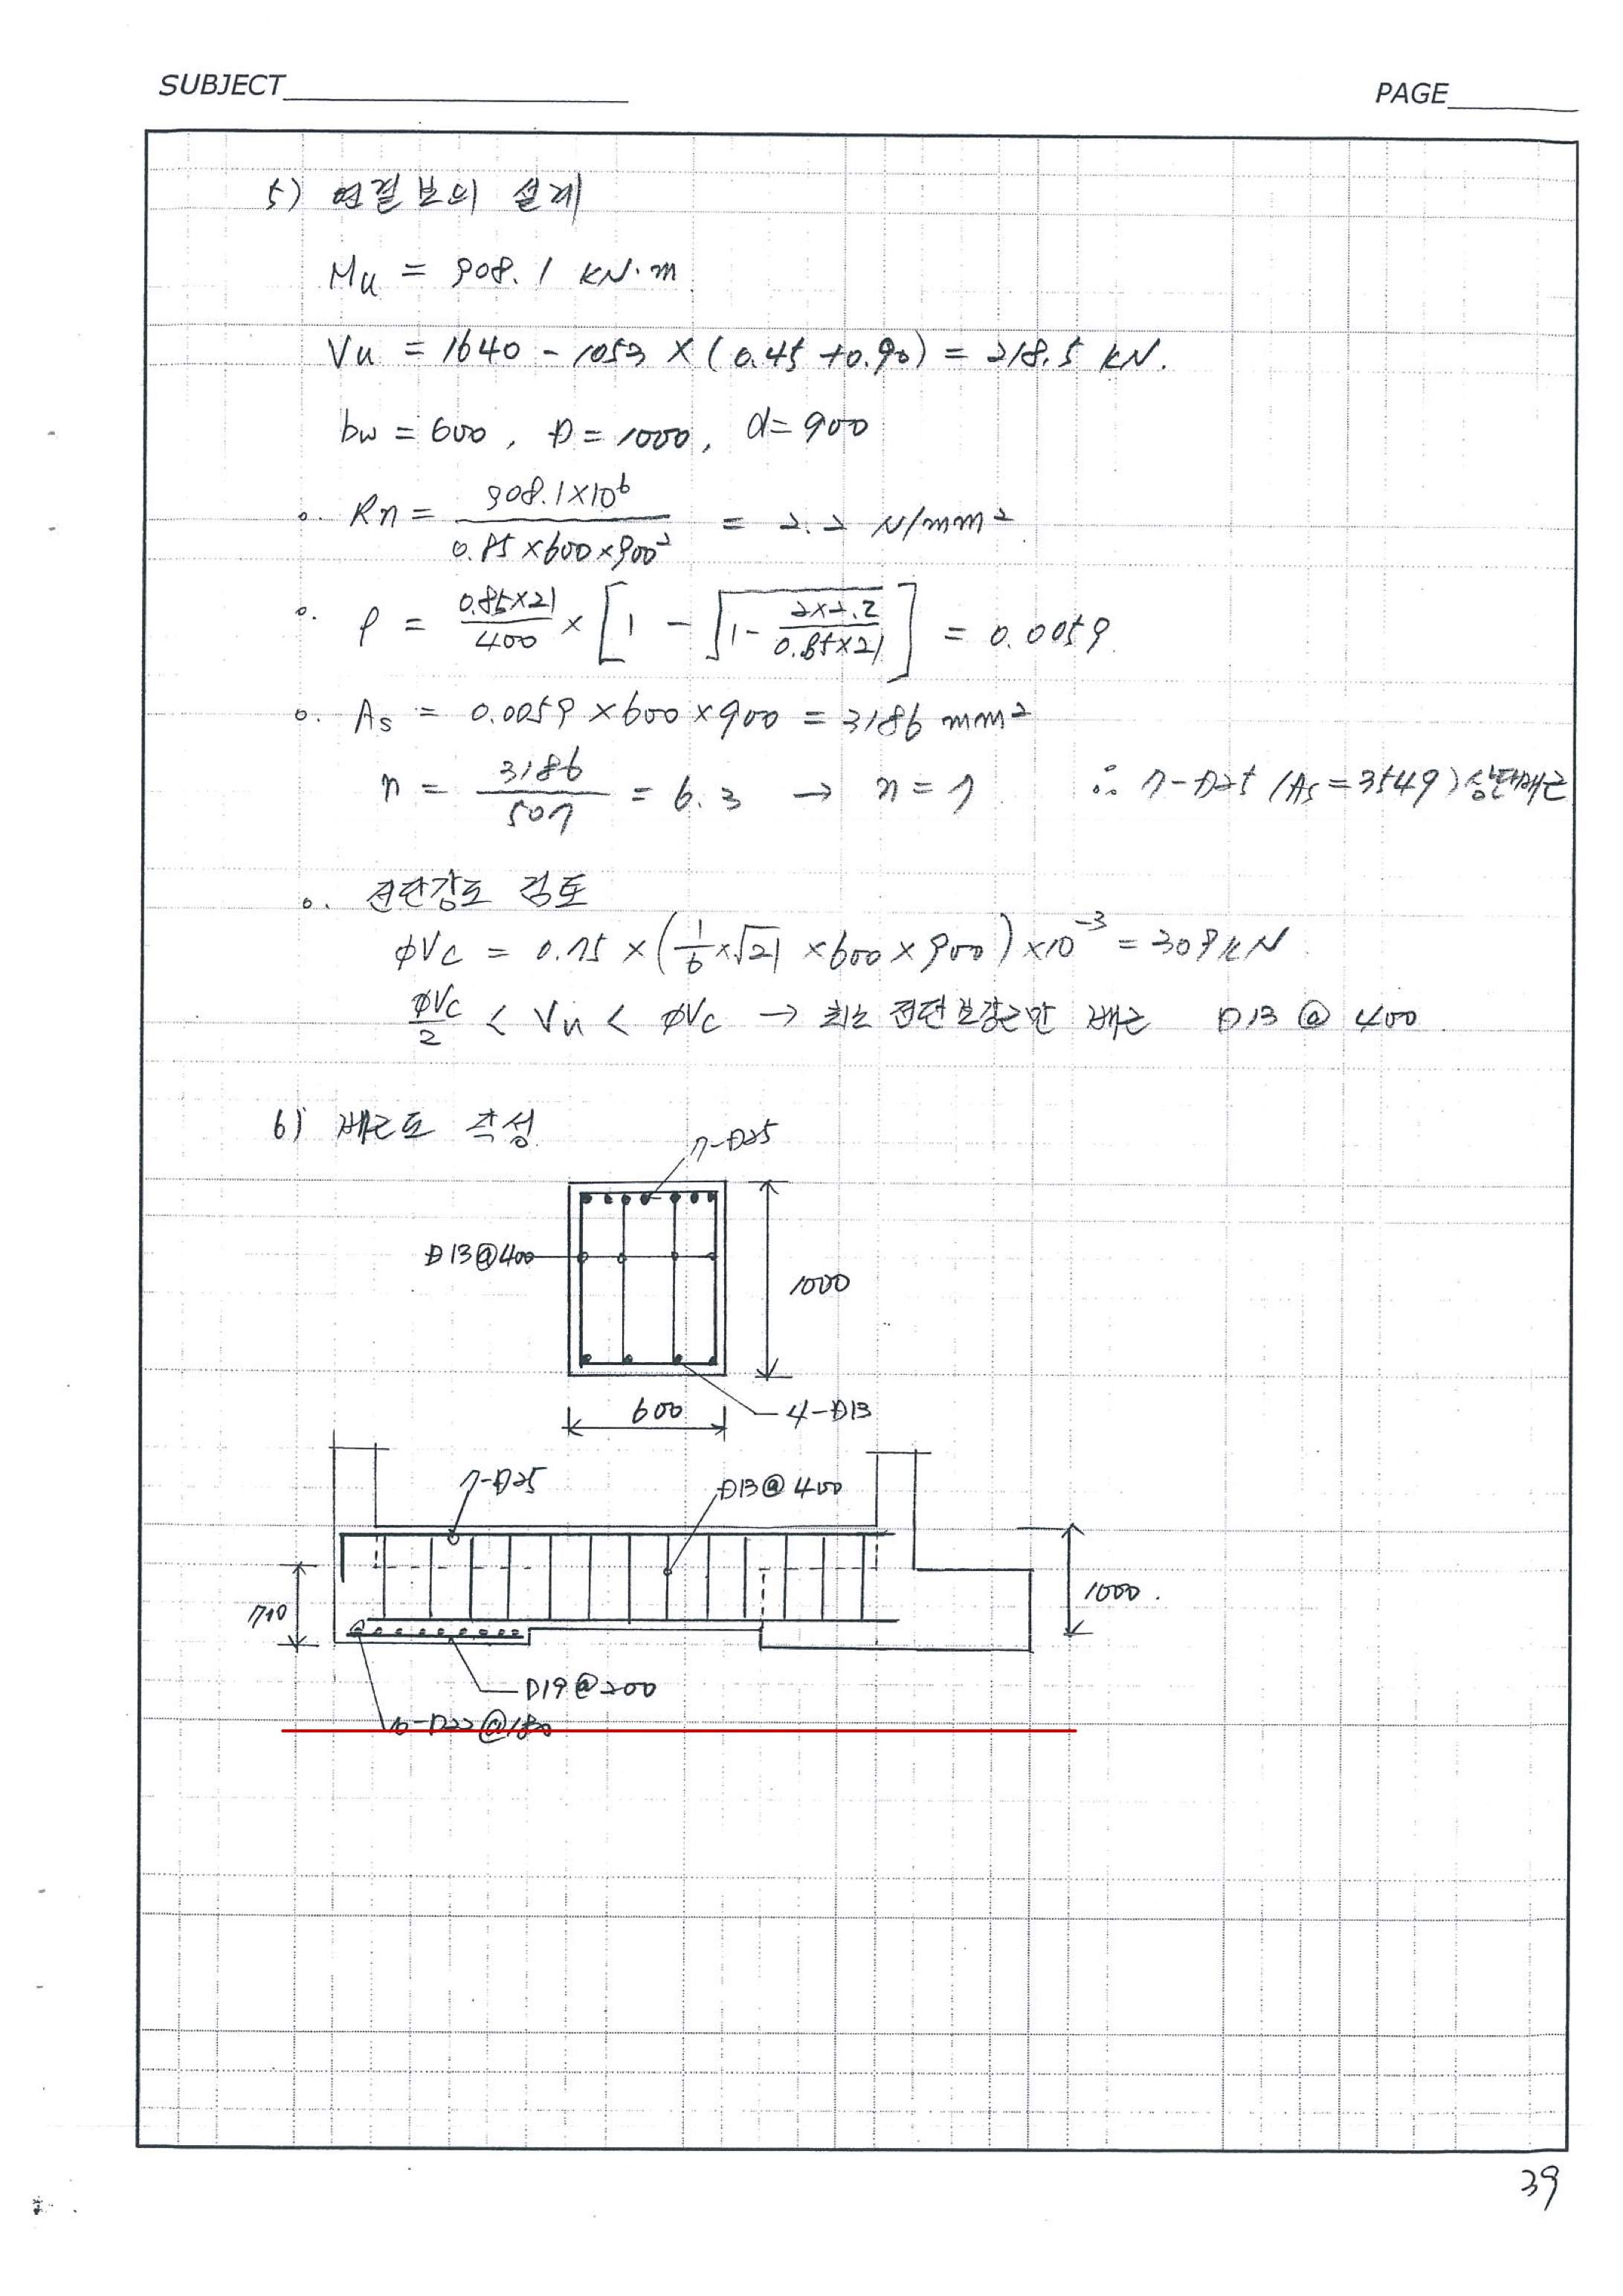 SUBJECT
PAGE
5) 연결보의 설계
Mu = 908.1 kN·m
Vu = 1640 - 1053 × (0.45 + 0.90) = 218.5 kN.
bw = 600, D = 1000, d = 900
o. Rn = 908.1×10⁶ / 0.85×600×900² = 2.2 N/mm²
o. ρ = 0.85×21 / 400 × [1 - √(1 - 2×2.2 / 0.85×21)] = 0.0059
o. As = 0.0059 × 600 × 900 = 3186 mm²
n = 3186 / 507 = 6.3 → n = 7 ∴ 7-D25 (As = 3549) 상단배근
o. 전단강도 검토
φVc = 0.75 × (1/6 × √21 × 600 × 900) × 10⁻³ = 309 kN
φVc/2 < Vu < φVc → 최소 전단보강근만 배근 D13 @ 400.
6) 배근도 작성
7-D25
D13@400
1000
600
4-D13
7-D25
D13@400
710
1000.
D19@200
10-D22@180
39